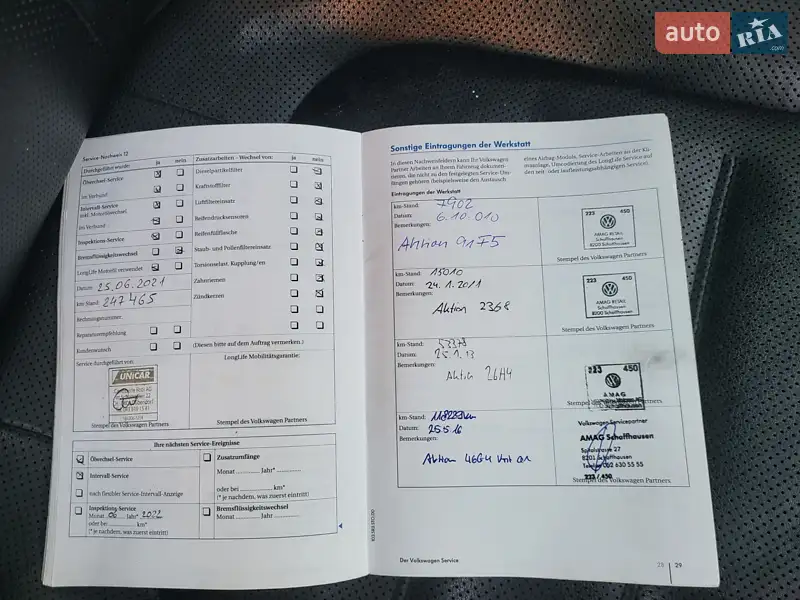 auto RIA.com
Service-Nachweis 12
Durchgeführt wurde: ja nein
Ölwechsel-Service
im Verbund
Intervall-Service
inkl. Motorölwechsel
im Verbund
Inspektions-Service
Bremsflüssigkeitswechsel
LongLife Motoröl verwendet
Datum: 25.06.2021
km-Stand: 247465
Rechnungsnummer:
Reparaturempfehlung
Kundenwunsch
Service durchgeführt von:
UNICAR
Stempel des Volkswagen Partners
Zusatzarbeiten - Wechsel von: ja nein
Dieselpartikelfilter
Kraftstofffilter
Luftfiltereinsatz
Reifendrucksensoren
Reifenfüllflasche
Staub- und Pollenfiltereinsatz
Torsionselast. Kupplung/en
Zahnriemen
Zündkerzen
(Diesen bitte auf dem Auftrag vermerken.)
LongLife Mobilitätsgarantie:
Stempel des Volkswagen Partners
Ihre nächsten Service-Ereignisse
Ölwechsel-Service
Intervall-Service
nach flexibler Service-Intervall-Anzeige
Inspektions-Service
Monat 06 Jahr* 2022
oder bei km*
(* je nachdem, was zuerst eintritt)
Zusatzumfänge
Monat Jahr*
oder bei km*
(* je nachdem, was zuerst eintritt)
Bremsflüssigkeitswechsel
Monat Jahr
Sonstige Eintragungen der Werkstatt
In diesen Nachweisfeldern kann Ihr Volkswagen
Partner Arbeiten an Ihrem Fahrzeug dokumen-
tieren, die nicht zu den festgelegten Service-Um-
fängen gehören (beispielsweise den Austausch
eines Airbag-Moduls, Service-Arbeiten an der Kli-
maanlage, Umcodierung des LongLife Service auf
den zeit- oder laufleistungsabhängigen Service).
Eintragungen der Werkstatt
km-Stand: 7902
Datum: 6.10.010
Bemerkungen:
Aktion 91F5
223 450
AMAG RETAIL
Schaffhausen
8200 Schaffhausen
Stempel des Volkswagen Partners
km-Stand: 15010
Datum: 24.1.2011
Bemerkungen:
Aktion 2368
223 450
AMAG RETAIL
Schaffhausen
8200 Schaffhausen
Stempel des Volkswagen Partners
km-Stand:
Datum: 25.1.13
Bemerkungen:
Aktion 26H4
223 450
AMAG
Stempel des Volkswagen Partners
km-Stand:
Datum: 25.5.16
Bemerkungen:
Aktion 46G4
Volkswagen Servicepartner
AMAG Schaffhausen
Spitalstrasse 27
8201 Schaffhausen
Telefon 052 630 55 55
223 / 450
Stempel des Volkswagen Partners
Der Volkswagen Service
28 29